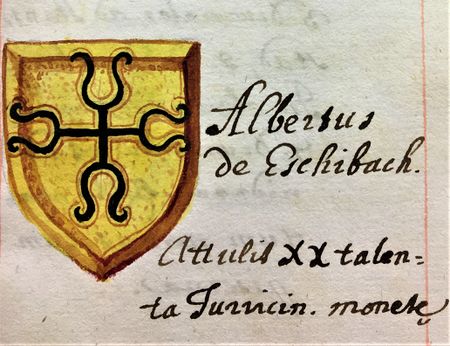 Albertus
de Eschibach.
Attulit XX talen=
ta Turricin. monetę